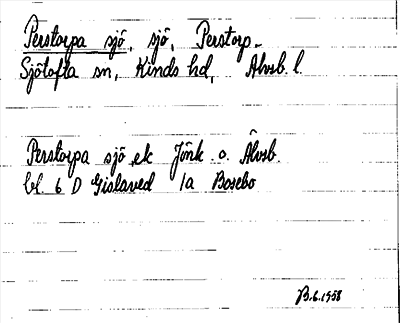 Perstorpa sjö, sjö, Perstorp.
Sjötofta sn, Kinds hd, Älvsb. l.
Perstorpa sjö ek Jönk o. Älvsb.
bl. 6 D Gislaved 1a Bosebo
B.6.1958